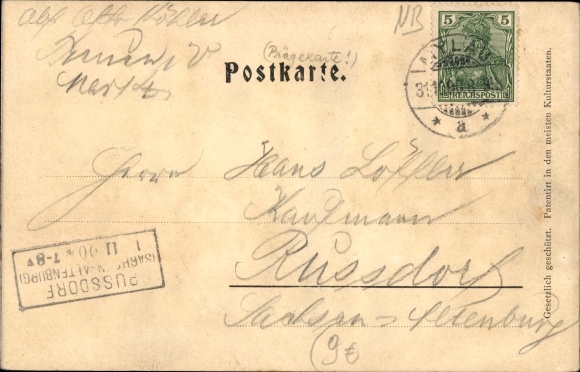 Otto Köhler
Markt
NB
(Prägekarte!)
Postkarte.
5 5
REICHSPOST
PLAU
31.
* a *
Herrn Hans Löffler
Kaufmann
Russdorf
Sachsen-Altenburg
9€
RUSSDORF
(SACHSEN-ALTENBURG)
1 11 00 * 7-8V
Gesetzlich geschützt. Patentirt in den meisten Kulturstaaten.